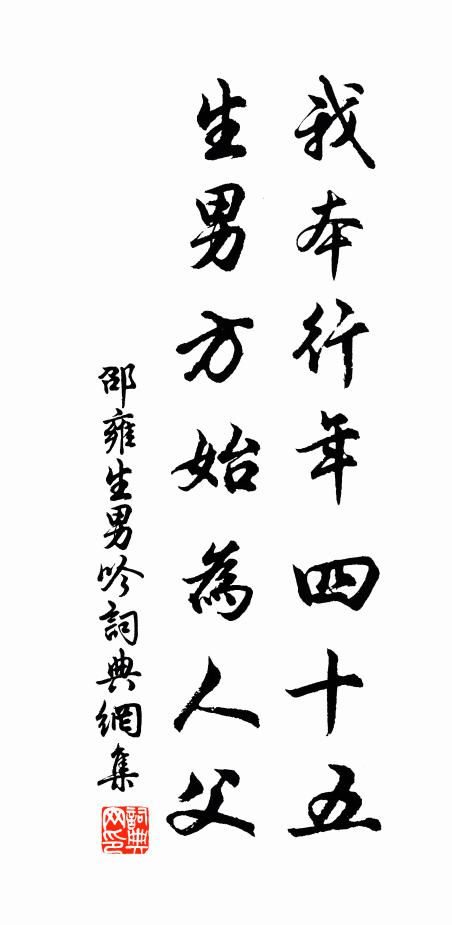 我本行年四十五
生男方始為人父
邵雍生男吟詞典網集
詞典网印